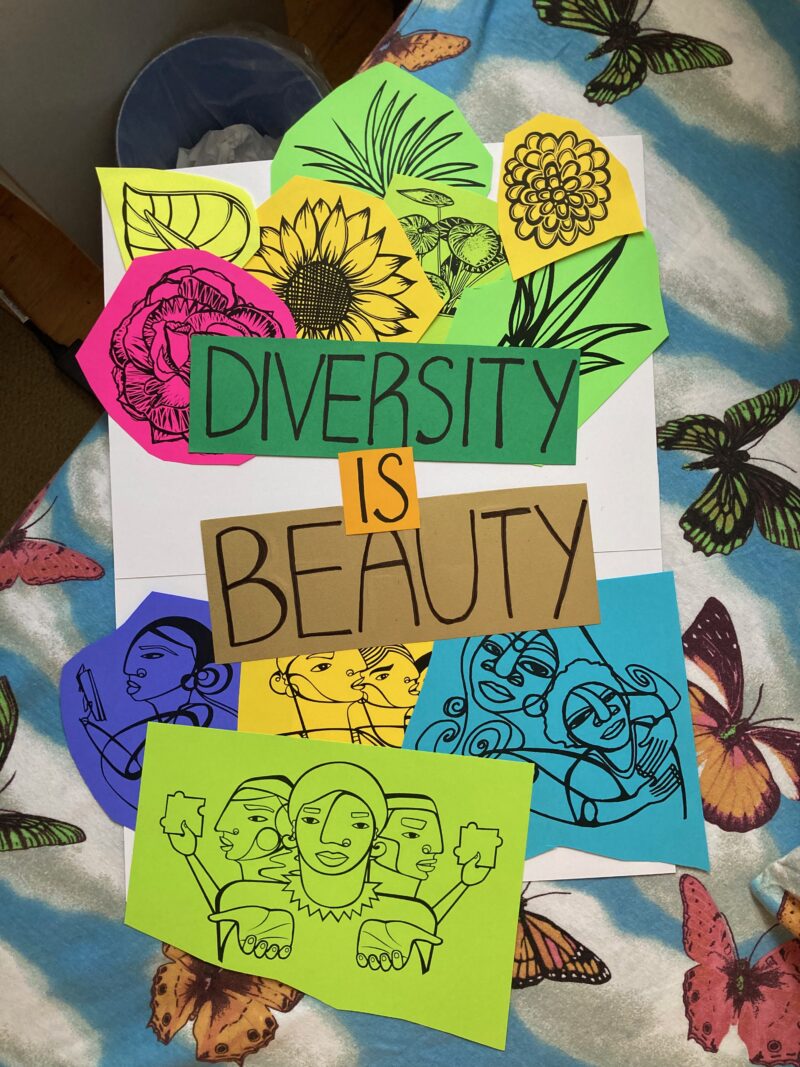 DIVERSITY
IS
BEAUTY